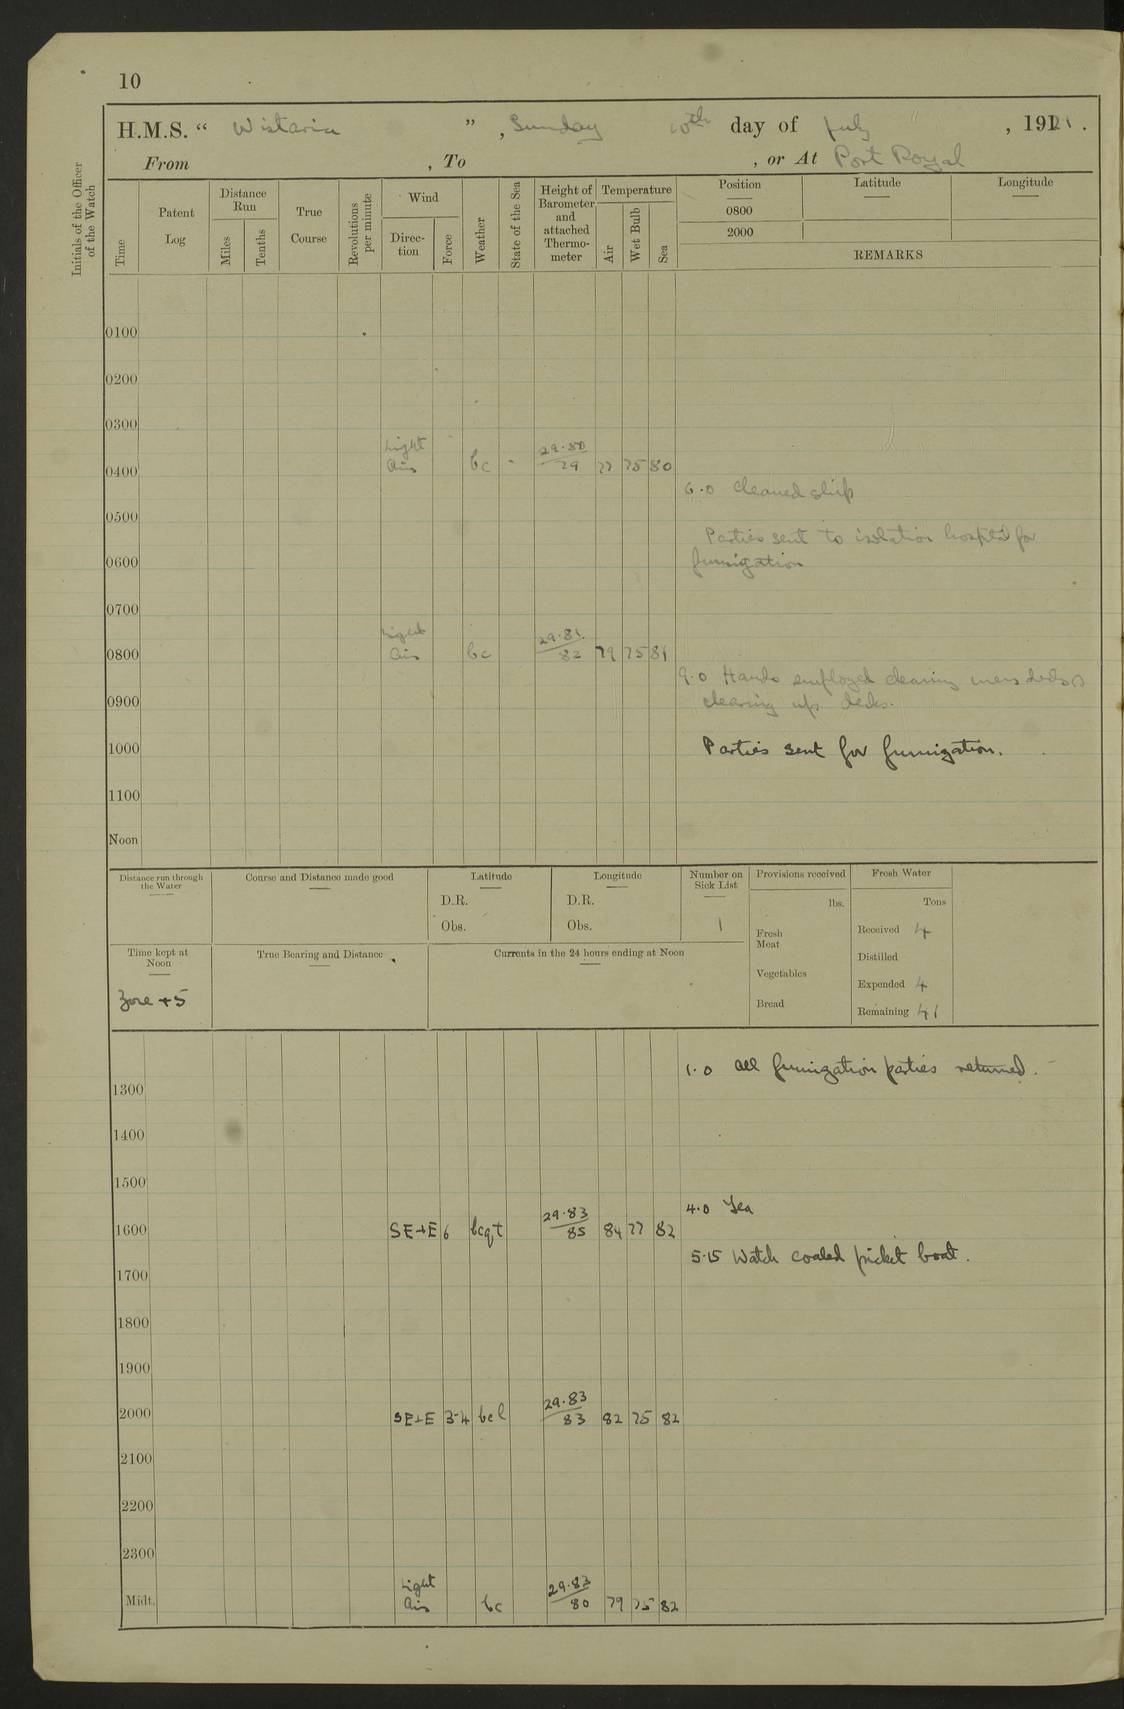 10
H.M.S. “ Wistaria ” , Sunday 10th day of July , 1921 .
From , To , or At Port Royal
Initials of the Officer of the Watch
Time
Patent Log
Distance Run
Miles
Tenths
True Course
Revolutions per minute
Wind
Direction
Force
Weather
State of the Sea
Height of Barometer and attached Thermometer
Temperature
Air
Wet Bulb
Sea
Position Latitude Longitude
0800
2000
REMARKS
0100
0200
0300
0400 Light Airs bc - 29.80 79 77 75 80
6.0 Cleaned ship
0500
Parties sent to isolation hospital for
0600 fumigation
0700
0800 Light Airs bc 29.81 82 79 75 81
9.0 Hands employed cleaning mess decks
0900 clearing up decks.
1000 Parties sent for fumigation.
1100
Noon
Distance run through the Water
Course and Distance made good
Latitude
D.R.
Obs.
Longitude
D.R.
Obs.
Number on Sick List
1
Provisions received
lbs.
Fresh Meat
Vegetables
Bread
Fresh Water
Tons
Received 4
Distilled
Expended 4
Remaining 41
Time kept at Noon
Zone +5
True Bearing and Distance
Currents in the 24 hours ending at Noon
1.0 All fumigation parties returned.
1300
1400
1500
4.0 Tea
1600 SE+E 6 bcqt 29.83 85 84 77 82
5.15 Watch coaled picket boat.
1700
1800
1900
2000 SE+E 3-4 bcl 29.83 83 82 75 82
2100
2200
2300
Midt. Light Airs bc 29.83 80 79 75 82